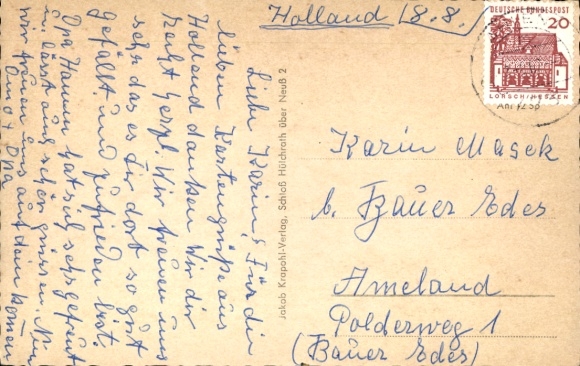 Holland (8.8.)
Liebe Karin! Für die
lieben Kartengrüße aus
Holland danken Wir dir
recht herzl. Wir freuen uns
sehr das es dir dort so gut
gefällt und zufrieden bist.
Opa Hamm hat sich sehr gefreut
u. lässt auch schön grüssen. Nun
wir freuen uns auf dein kommen
Oma + Opa
Jakob Krapohl-Verlag, Schloß Hülchrath über Neuß 2
DEUTSCHE BUNDESPOST
20
LORSCH/HESSEN
Karin Masek
b. Bauer Edes
Ameland
Polderweg 1
(Bauer Edes)